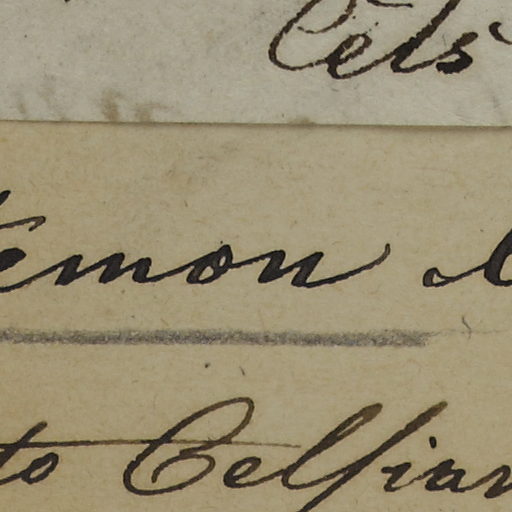 Cels
emon
to Celsian